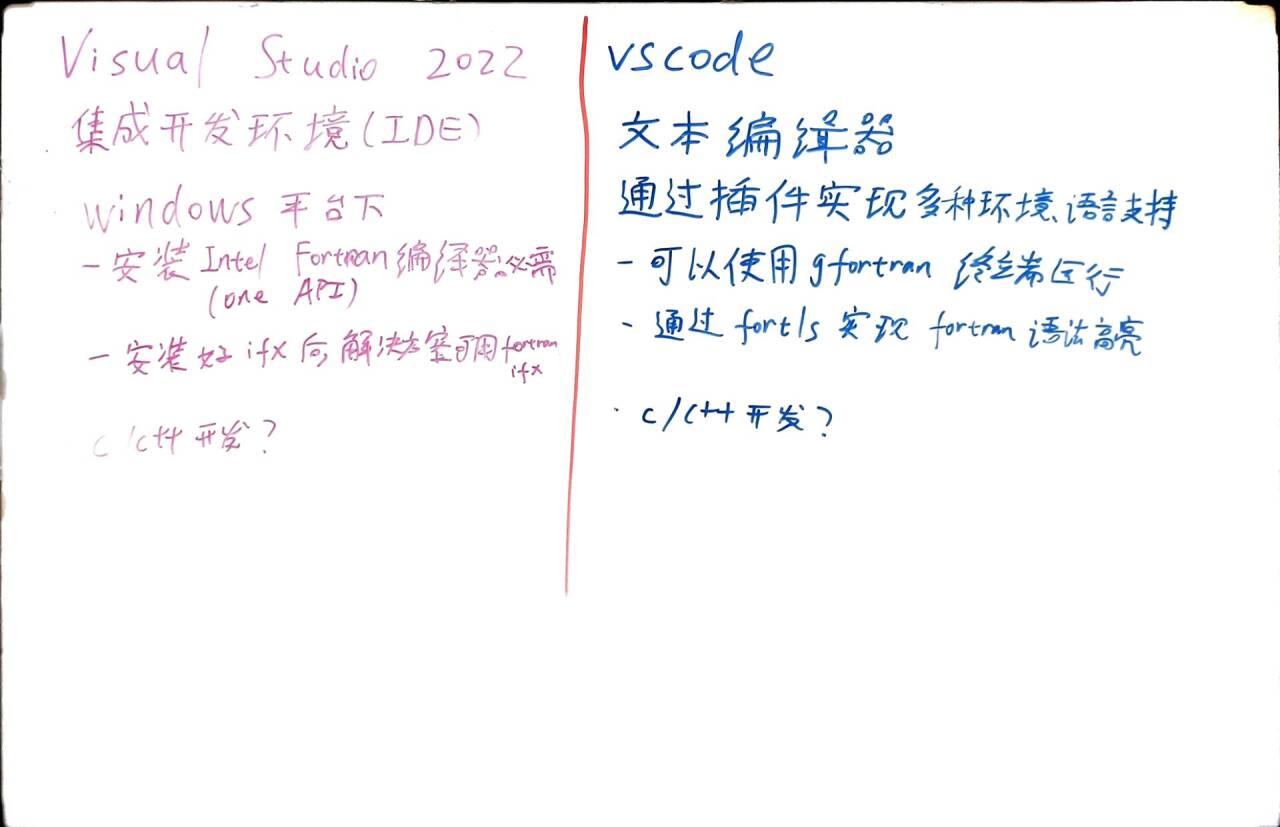 Visual Studio 2022
集成开发环境(IDE)
windows 平台下
-安装Intel Fortran编译器必需
(one API)
-安装好 ifx 后,解决方案可用fortran
ifx
c/c++ 开发?
vscode
文本编辑器
通过插件实现多种环境、语言支持
-可以使用gfortran 终端运行
-通过 fortls 实现 fortran 语法高亮
· c/c++ 开发?